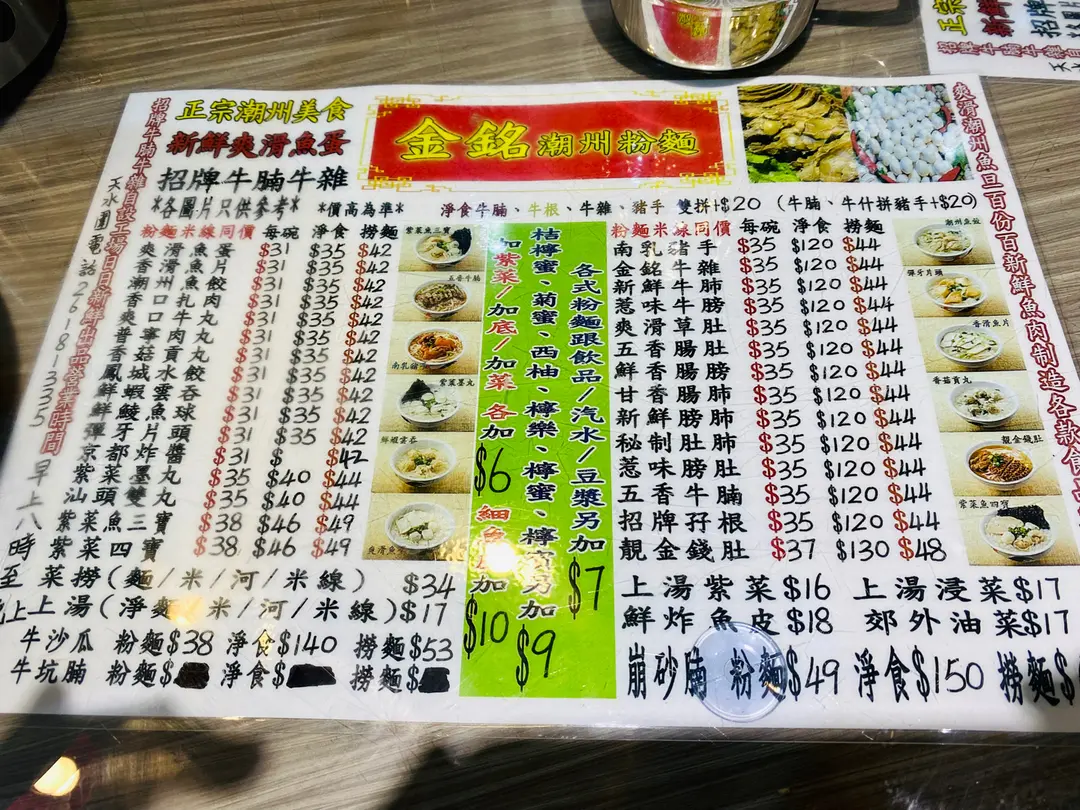 正宗潮州美食
新鮮爽滑魚蛋
招牌牛腩牛雜
金銘潮州粉麵
*各圖片只供參考* *價高為準* 淨食牛腩、牛根、牛雜、豬手 雙拼+$20 (牛腩、牛什拼豬手+$20)
粉麵米線同價 每碗 淨食 撈麵
爽滑魚蛋 $31 $35 $42
香滑魚片 $31 $35 $42
香滑魚餃 $31 $35 $42
潮州扎肉 $31 $35 $42
香菇貢丸 $31 $35 $42
鳳城水餃 $31 $35 $42
鮮蝦雲吞 $31 $35 $42
鮮鯪魚球 $31 $35 $42
彈牙片頭 $31 $35 $42
京都炸醬 $31 $ $42
紫菜墨丸 $35 $40 $44
汕頭雙丸 $35 $40 $44
紫菜魚三寶 $38 $46 $49
紫菜四寶 $38 $46 $49
菜撈(麵/米/河/米線) $34
上湯(淨麵/米/河/米線)$17
牛沙瓜 粉麵$38 淨食$140 撈麵$53
牛坑腩 粉麵$ 淨食$ 撈麵$
紫菜魚三寶
五香牛腩
南乳豬手
紫菜墨丸
鮮蝦雲吞
加紫菜/加底/加菜 各加$6
加$10
桔檸蜜、菊蜜、西柚、檸樂、檸蜜、檸賓另加$9
各式粉麵跟飲品/汽水/豆漿另加$7
粉麵米線同價 每碗 淨食 撈麵
南乳豬手 $35 $120 $44
金銘牛雜 $35 $120 $44
新鮮牛肺 $35 $120 $44
惹味牛膀 $35 $120 $44
爽滑草肚 $35 $120 $44
五香腸肚 $35 $120 $44
鮮香腸膀 $35 $120 $44
甘香腸肺 $35 $120 $44
新鮮膀肺 $35 $120 $44
秘制肚肺 $35 $120 $44
惹味膀肚 $35 $120 $44
五香牛腩 $35 $120 $44
招牌孖根 $35 $120 $44
靚金錢肚 $37 $130 $48
上湯紫菜$16 上湯浸菜$17
鮮炸魚皮$18 郊外油菜$17
崩砂腩 粉麵$49 淨食$150 撈麵$
潮州魚餃
彈牙片頭
香滑魚片
香菇貢丸
靚金錢肚
紫菜魚四寶
招牌牛腩牛雜自設工場日日新鮮
天水圍電話26181335
營業時間
早上八時至
爽滑潮州魚旦百份百新鮮魚肉制造各款食